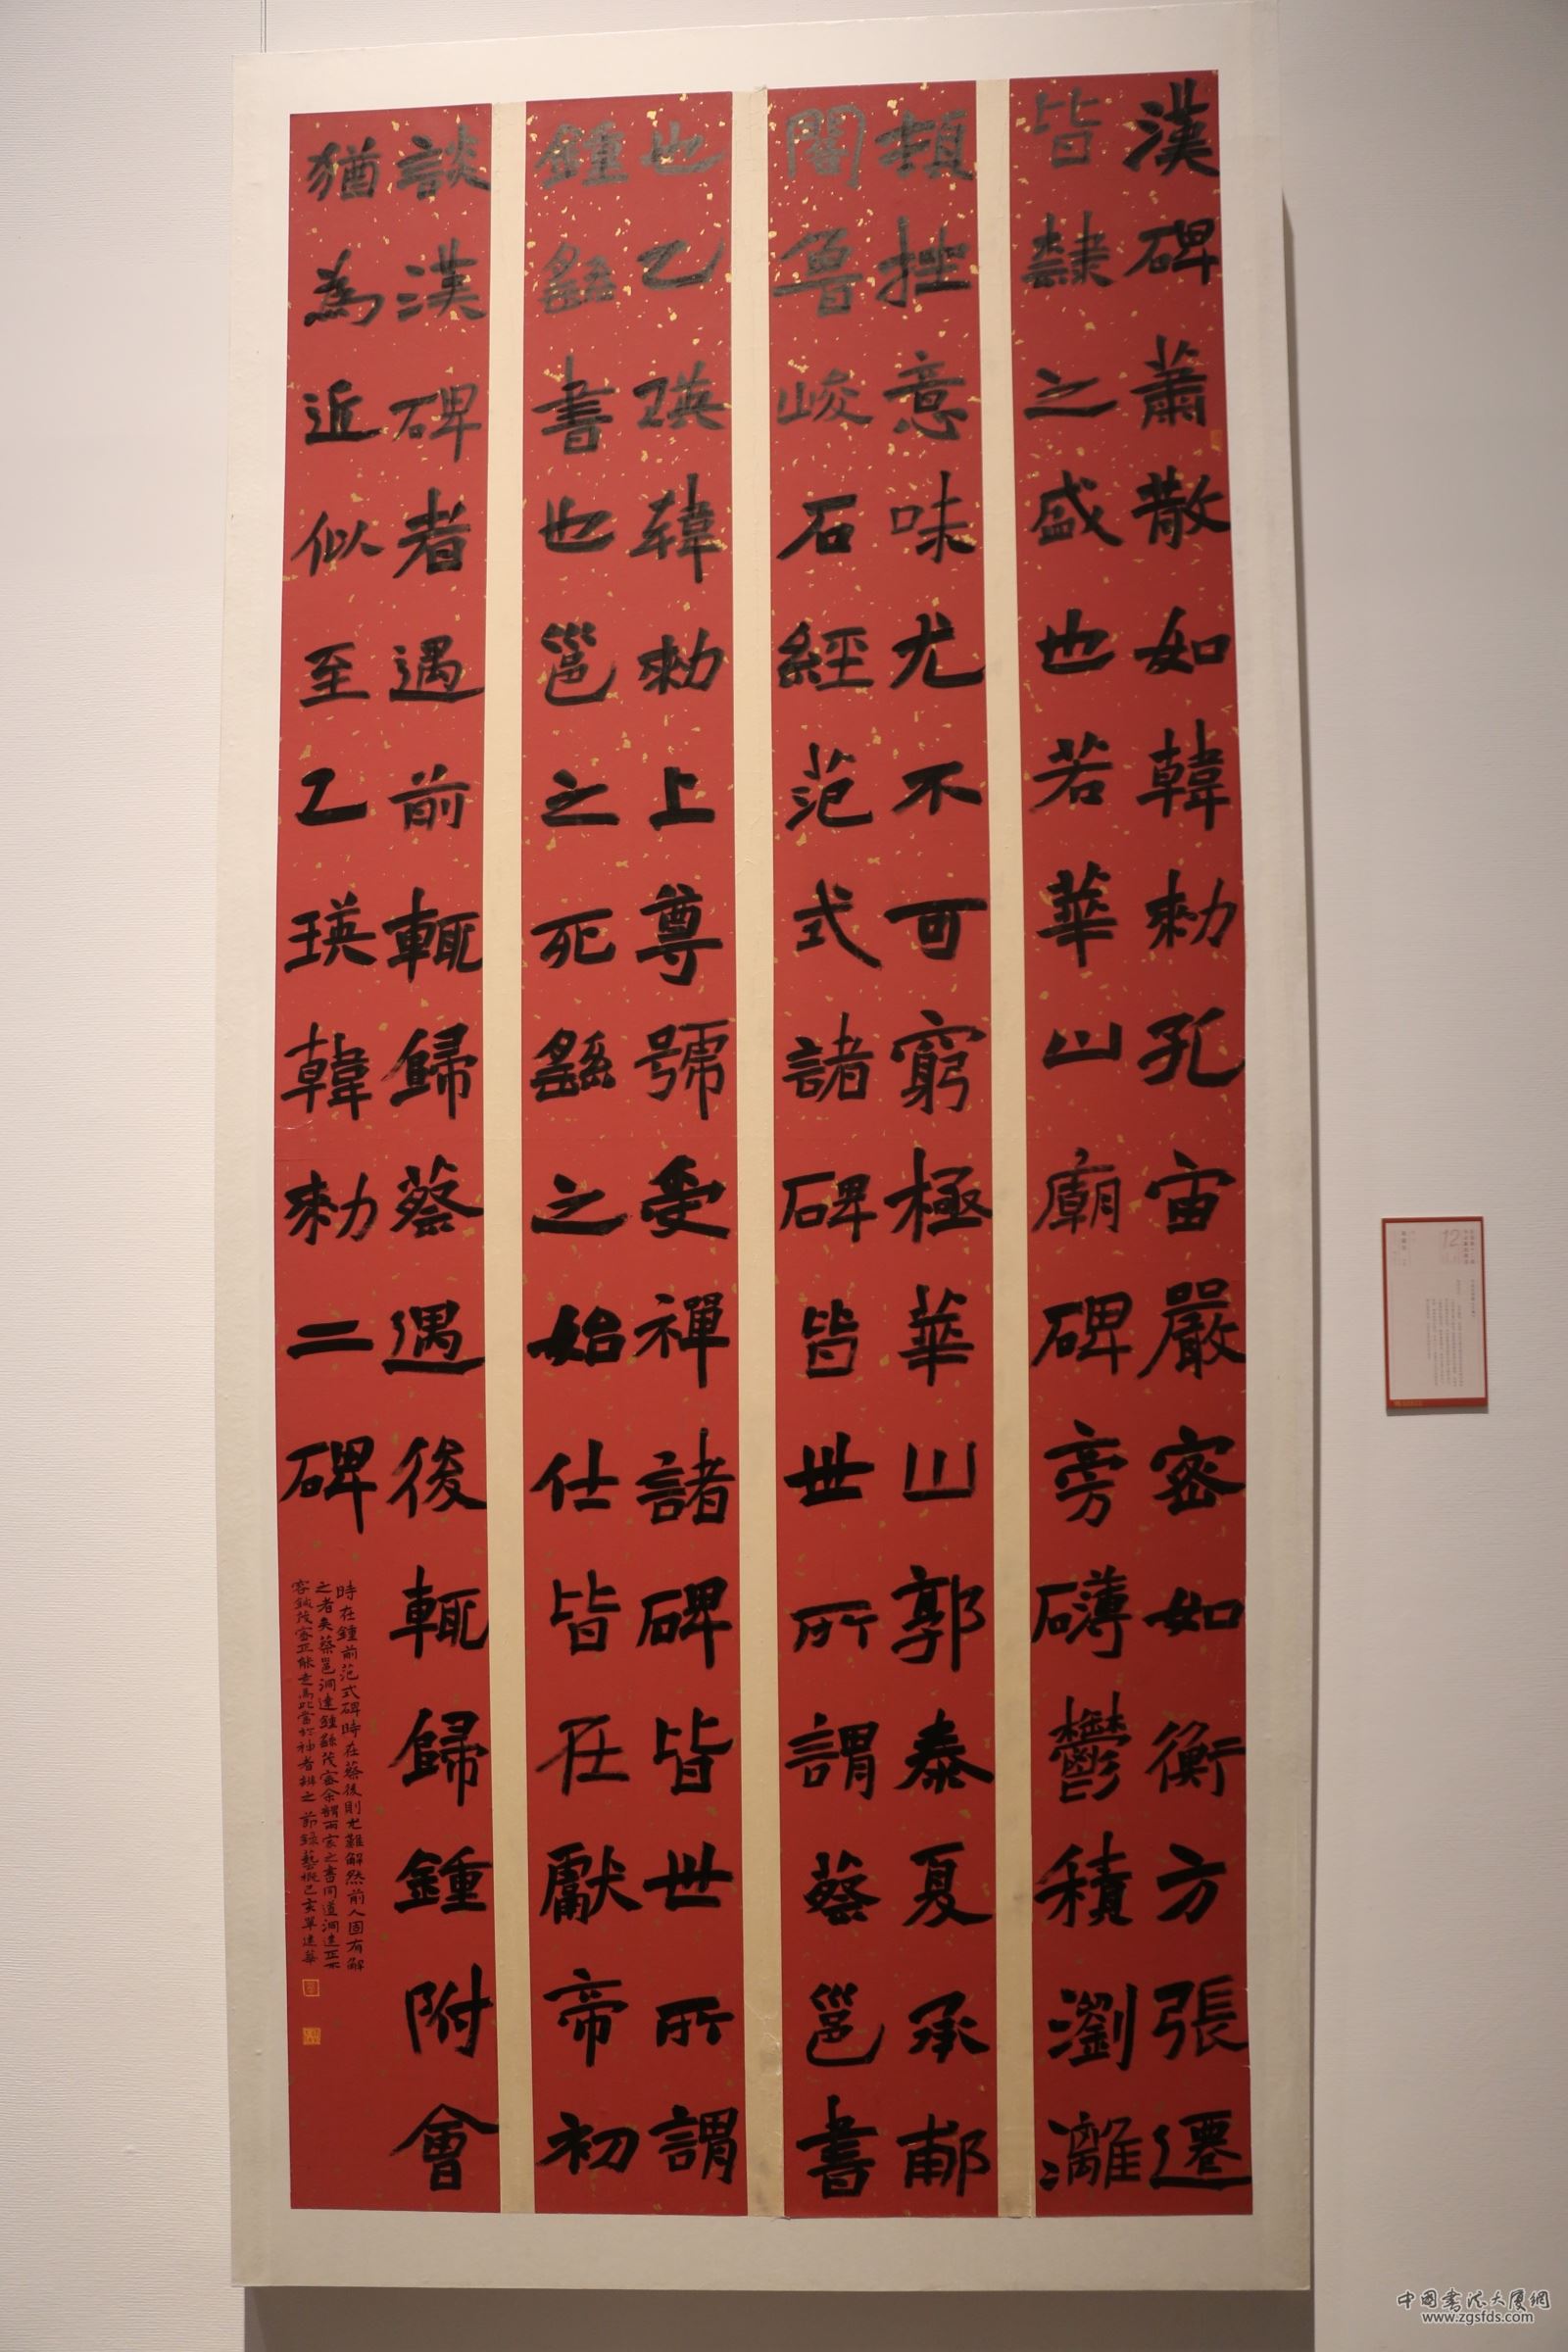 漢碑蕭散如韓勑孔宙嚴密如衡方張遷
皆隸之盛也若華山廟碑旁礴鬱積瀏灕
頓挫意味尤不可窮極華山郭泰夏承郙
閣魯峻石經范式諸碑皆世所謂蔡邕書
也乙瑛韓勑上尊號受禪諸碑皆世所謂
鍾繇書也邕之死繇之始仕皆在獻帝初
談漢碑者遇前輒歸蔡遇後輒歸鍾附會
猶為近似至乙瑛韓勑二碑
時在鍾前范式碑時在蔡後則尤難解然前人固有解
之者矣蔡邕洞達鍾繇茂密余謂兩家之書同道洞達正不
容茂密正能走馬此當於神者辨之 節錄藝概己亥單
12
中國書法大廈網
www.zgsfds.com